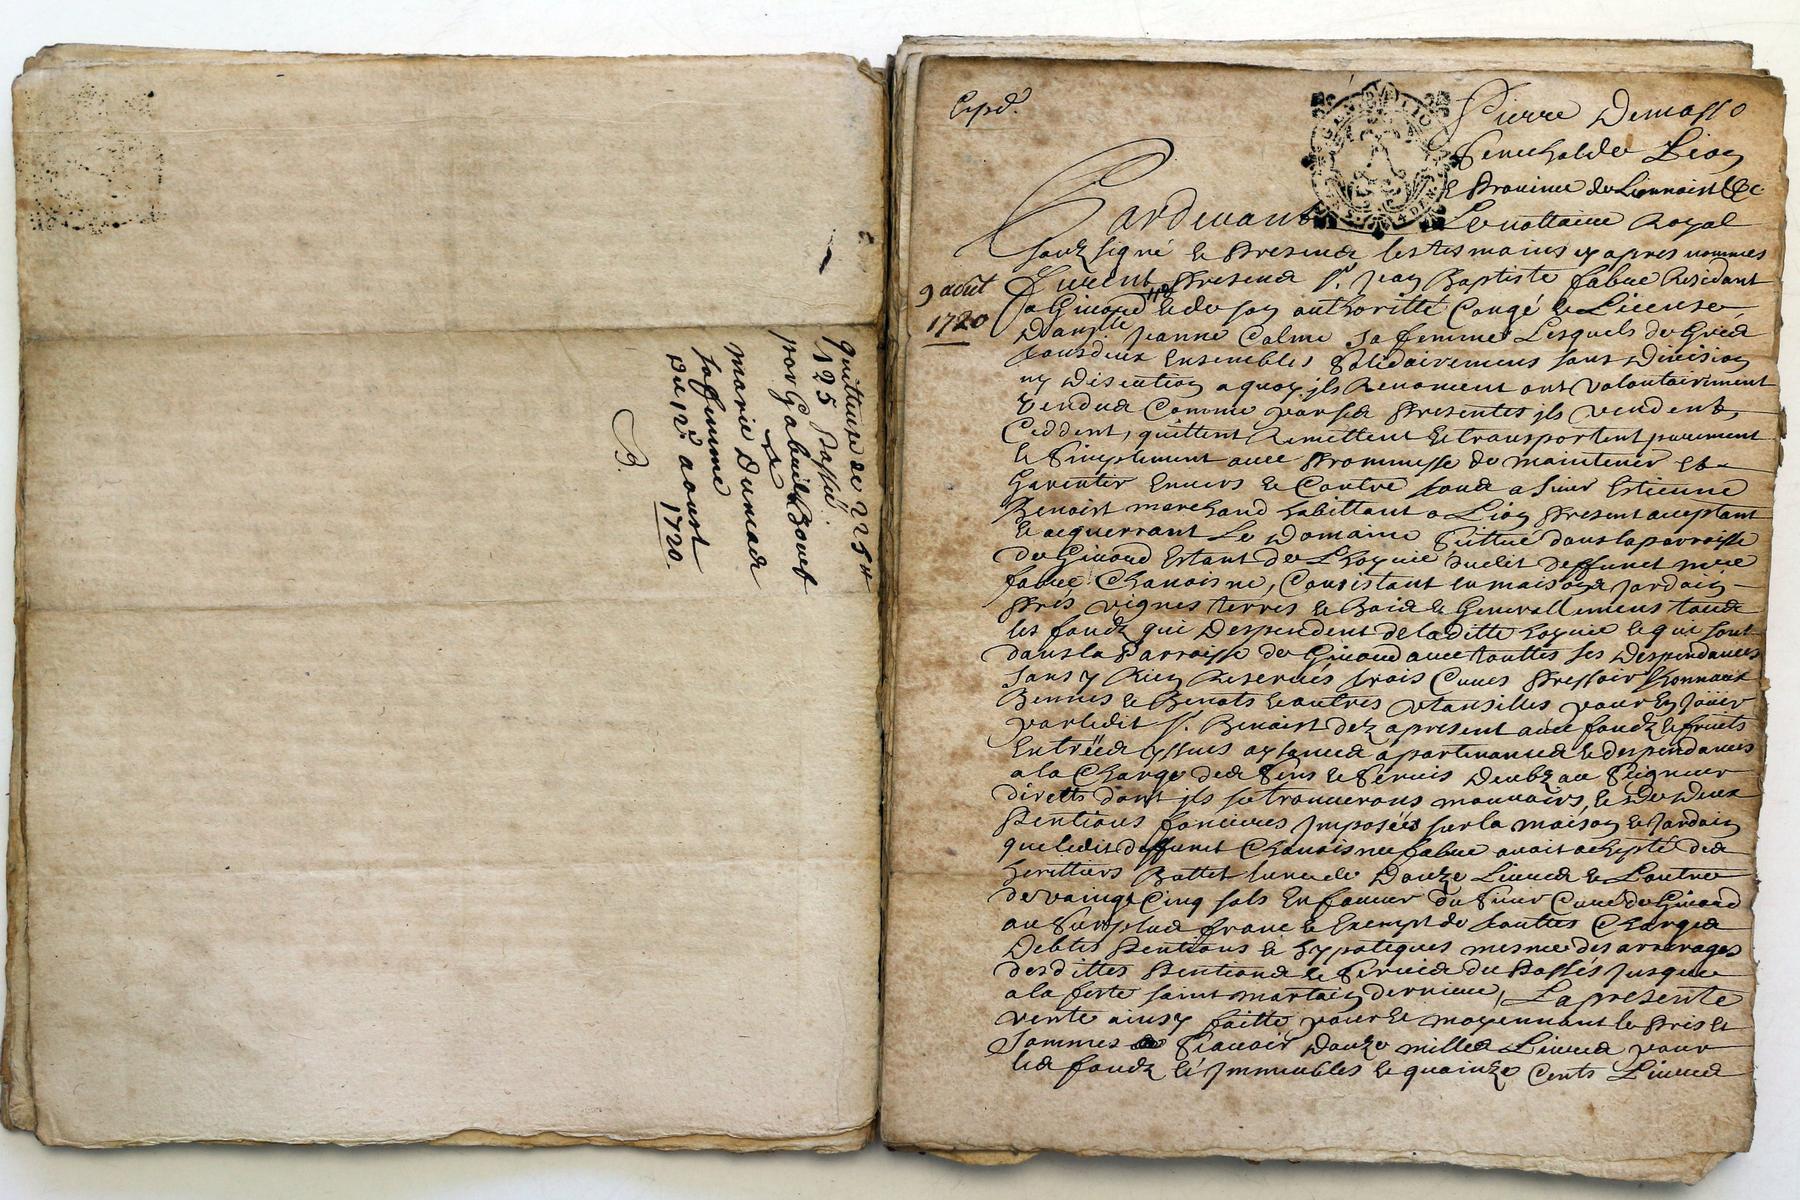 quittance de 225 ₶
125 passée
par Gabriel Bouet
&
marie Dumad
sa femme
du 12e aoust
1720.
B.
Expd.
Pierre Demasso
Senechal de Lion
& Prouince du Lionnoist &c
Pardeuant Le nottaire Royal
souz signé & Presena les tesmoins cy apres nommes
furent Presena Sr. Jean Baptiste fabue Residant
9 aoust
1720
a Giuord & de son authoritté Congé & License
Damlle Jeanne Colme sa femme Lesquels de Gréa
tous deux Ensembles solidairemens sans Diuision
ny Discution a quoy ils Renoncent ont volontairement
Vendua Comme par sea Presentes ils vendent,
Ceddent, quittent Remettent & transportent purement
& Simplement auec Prommesse de maintenir Et
Garentir Enuers & Contre toua a sieur Estienne
Benoist marchand habittant a Lion Present acceptant
& acquerrant Le Domaine Scittué dans la parroisse
de Giuord Estant de L'hoyrie dudit deffunct mre
fabue Chanoisne, Consistant en maisona Jardain
Préa vignes terres & Boia & Generallemens toua
les fondz qui Despendent de laditte hoyrie & qui sont
dans la Parroisse de Giuord auec touttes ses Despendances
sans y Rien Reseruer trois Cuues Pressoir thonnaux
Bennes & Benots & autres vtansilles pour En Joüir
par ledit sr. Benoist dez apresent auec fondz & fruits
Entréea yssues aysancea apartenancea & despendances
a la Charge dea Sens & Seruis Deubz au Seigneur
directs dont ils se trouuerons mouuoirs, & de deux
Pentions foncieres Imposées sur la maison & Jardain
que ledit deffunct Chanoisne fabue auoit achepté dea
heritiers Battet l'une de Douze Liurea & L'autre
de vaingt Cinq sols En faueur du sieur Curé de Giuord
au Surplua franc & Exempt de touttes Chargea
Debtes Pentions & hypoteques mesme des arrerages
desdittes Pentiona & Seruia du Passés Jusques
a la feste saint martain derniere, La presente
vente ainsy faitte pour & moyennant le Pris &
Sommes Scauoir Douze millea Liurea pour
lea fondz & Immeubles & quainze Cents Liurea